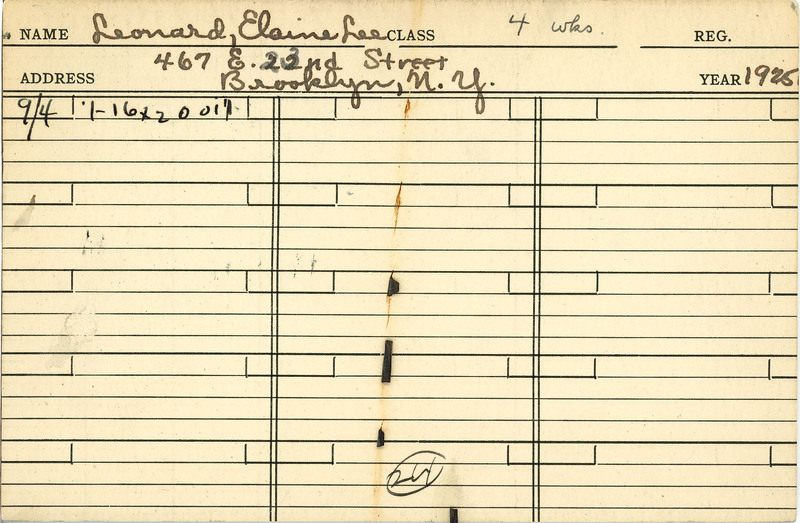 NAME Leonard, Elaine Lee CLASS 4 wks. REG.
467 E. 22nd Street
ADDRESS Brooklyn, N. Y. YEAR 1925
9/4 1-16x20 oil